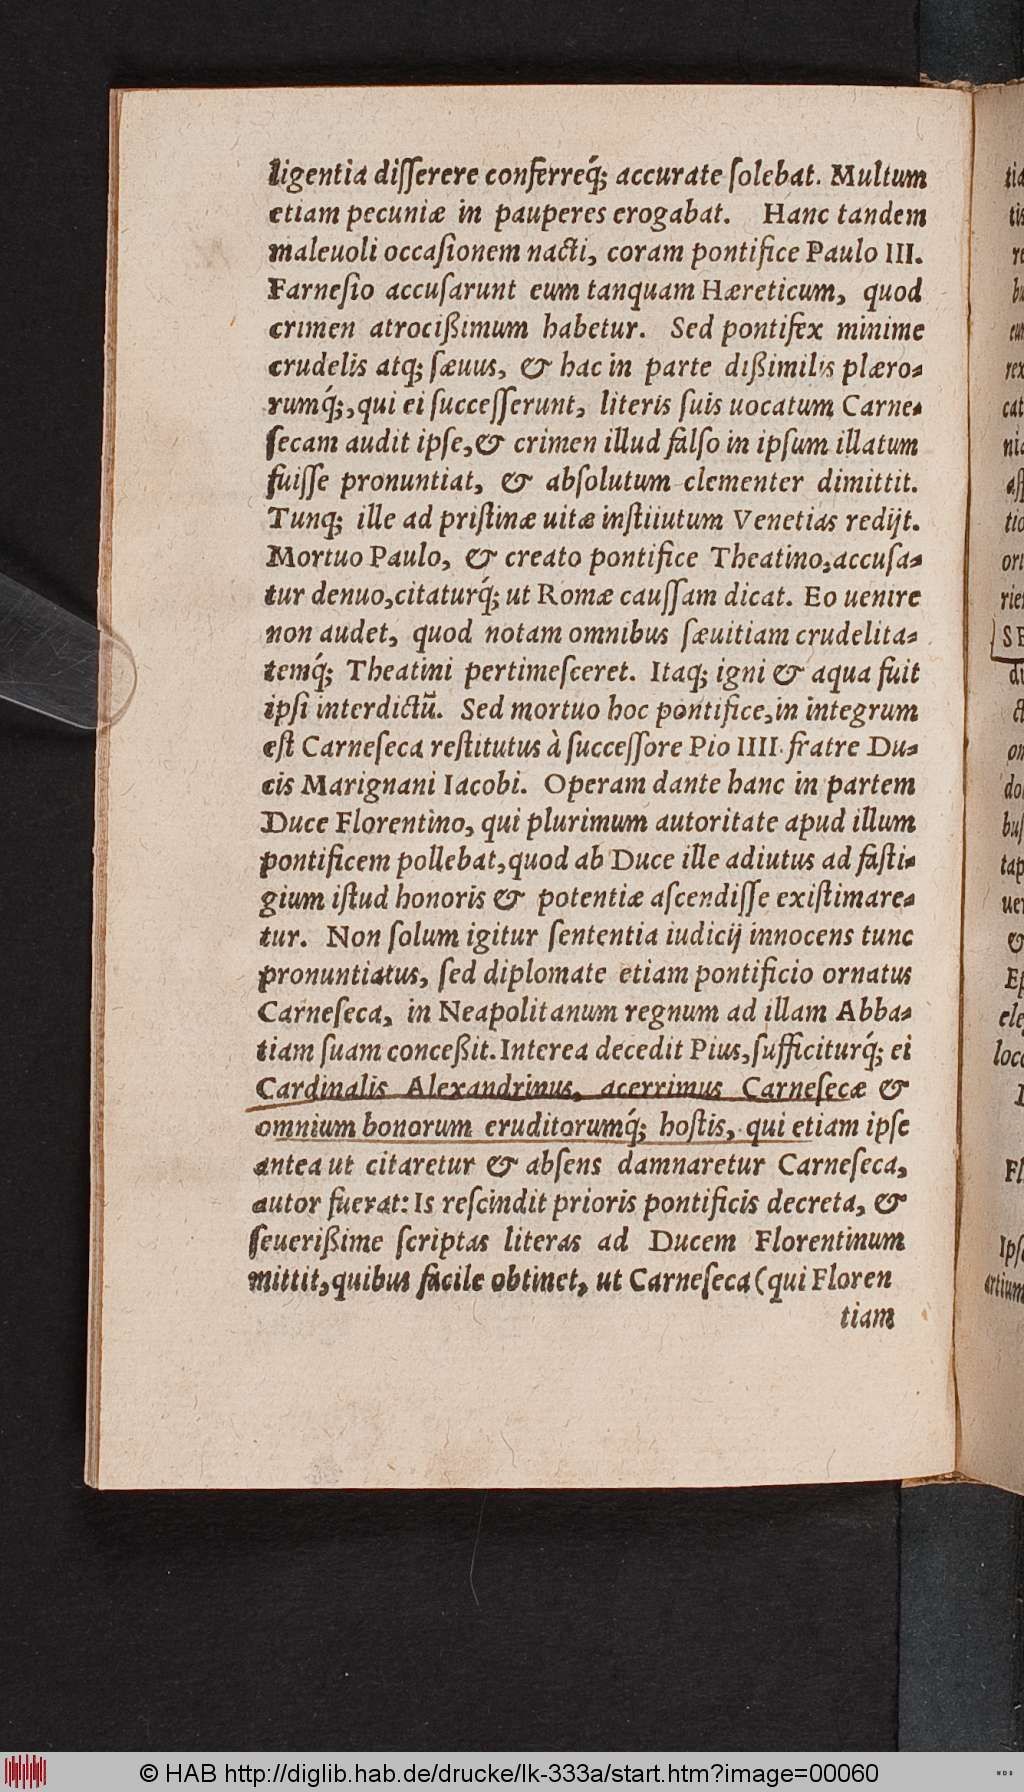 ligentia diſſerere conferreq́; accurate ſolebat. Multum
etiam pecuniæ in pauperes erogabat. Hanc tandem
maleuoli occaſionem nacti, coram pontifice Paulo III.
Farneſio accuſarunt eum tanquam Hæreticum, quod
crimen atrocißimum habetur. Sed pontifex minime
crudelis atq; ſæuus, & hac in parte dißimilis plæro-
rumq́;, qui ei ſucceſſerunt, literis ſuis uocatum Carne-
ſecam audit ipſe, & crimen illud falſo in ipſum illatum
fuiſſe pronuntiat, & abſolutum clementer dimittit.
Tunq; ille ad priſtinæ uitæ inſtiiutum Venetias redijt.
Mortuo Paulo, & creato pontifice Theatino, accuſa-
tur denuo, citaturq́; ut Romæ cauſſam dicat. Eo uenire
non audet, quod notam omnibus ſæuitiam crudelita-
temq́; Theatini pertimeſceret. Itaq; igni & aqua fuit
ipſi interdictũ. Sed mortuo hoc pontifice, in integrum
eſt Carneſeca reſtitutus à ſucceſſore Pio IIII. fratre Du-
cis Marignani Iacobi. Operam dante hanc in partem
Duce Florentino, qui plurimum autoritate apud illum
pontificem pollebat, quod ab Duce ille adiutus ad faſti-
gium iſtud honoris & potentiæ aſcendiſſe exiſtimare-
tur. Non ſolum igitur ſententia iudicij innocens tunc
pronuntiatus, ſed diplomate etiam pontificio ornatus
Carneſeca, in Neapolitanum regnum ad illam Abba-
tiam ſuam conceßit. Interea decedit Pius, ſufficiturq́; ei
Cardinalis Alexandrinus, acerrimus Carneſecæ &
omnium bonorum eruditorumq́; hoſtis, qui etiam ipſe
antea ut citaretur & abſens damnaretur Carneſeca,
autor fuerat: Is reſcindit prioris pontificis decreta, &
ſeuerißime ſcriptas literas ad Ducem Florentinum
mittit, quibus facile obtinet, ut Carneſeca (qui Floren
tiam
© HAB http://diglib.hab.de/drucke/lk-333a/start.htm?image=00060